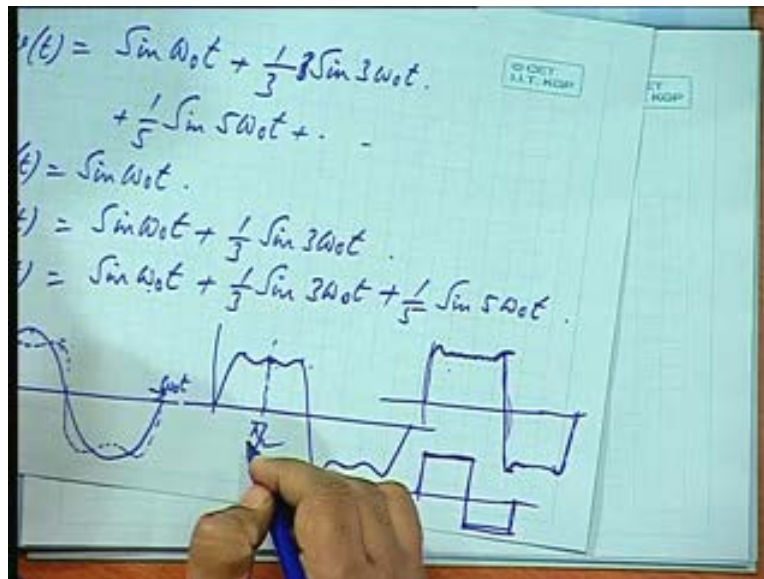 v(t) = Sin ω₀t + 1/3 Sin 3ω₀t.
+ 1/5 Sin 5ω₀t + . -
t) = Sin ω₀t .
t) = Sin ω₀t + 1/3 Sin 3ω₀t .
) = Sin ω₀t + 1/3 Sin 3ω₀t + 1/5 Sin 5ω₀t .
ω₀t
π/2
© CET
I.I.T. KGP
ET
KGP